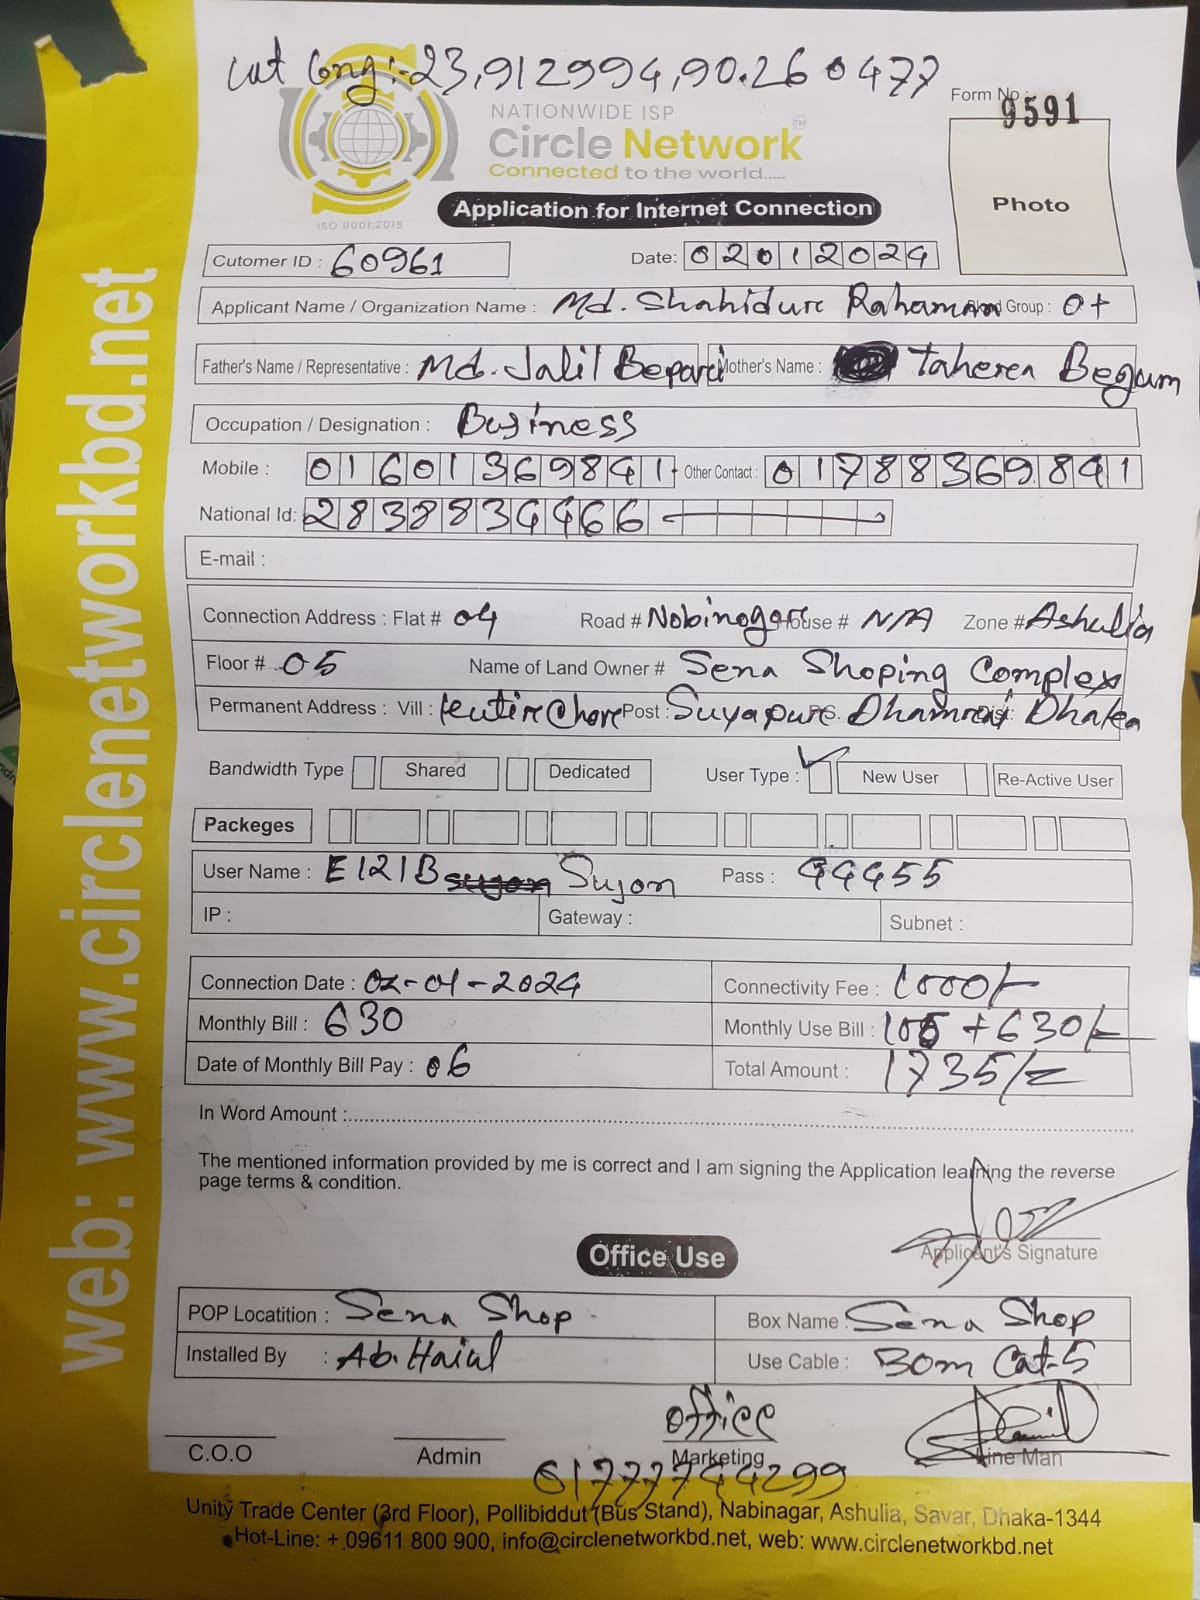 Lat Long:-23,912994,90.260477
Form No : 9591
NATIONWIDE ISP
Circle Network TM
Connected to the world.....
ISO 9001:2015
Application for Internet Connection
Photo
Cutomer ID : 60961 Date: 02012024
Applicant Name / Organization Name : Md. Shahidur Rahaman Blood Group : O+
Father's Name / Representative : Md. Jalil Bepari Mother's Name : Taheren Begum
Occupation / Designation : Business
Mobile : 01601369841 Other Contact : 01788369841
National Id: 2838834466
E-mail :
Connection Address : Flat # 04 Road # Nobinogor House # N/A Zone # Ashulia
Floor # 05 Name of Land Owner # Sena Shoping Complex
Permanent Address : Vill : Post : Suyapur P.S. Dhamrai Dist: Dhaka
Bandwidth Type Shared Dedicated User Type : New User Re-Active User
Packeges
User Name : E121B Sujon Pass : 44455
IP : Gateway : Subnet :
Connection Date : 02-01-2024 Connectivity Fee : 1000/-
Monthly Bill : 630 Monthly Use Bill : 105 + 630/-
Date of Monthly Bill Pay : 06 Total Amount : 1735/=
In Word Amount :
The mentioned information provided by me is correct and I am signing the Application learning the reverse
page terms & condition.
Applicant's Signature
Office Use
POP Locatition : Sena Shop Box Name : Sena Shop
Installed By : Ab. Halal Use Cable : 30m Cat-5
office
C.O.O Admin Marketing Line Man
01777744299
Unity Trade Center (3rd Floor), Pollibiddut (Bus Stand), Nabinagar, Ashulia, Savar, Dhaka-1344
Hot-Line: + 09611 800 900, info@circlenetworkbd.net, web: www.circlenetworkbd.net
web: www.circlenetworkbd.net